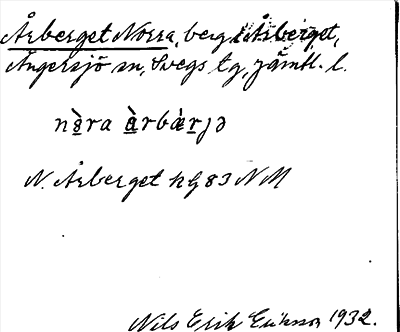 Årberget Norra, berg i Årberget,
Ängersjö sn, Svegs tg, Jämtl. l.
nò̱ra à̱rbæ̀ṟjə
N. Årberget h G 83 N M
Nils Erik Eriksson 1932.